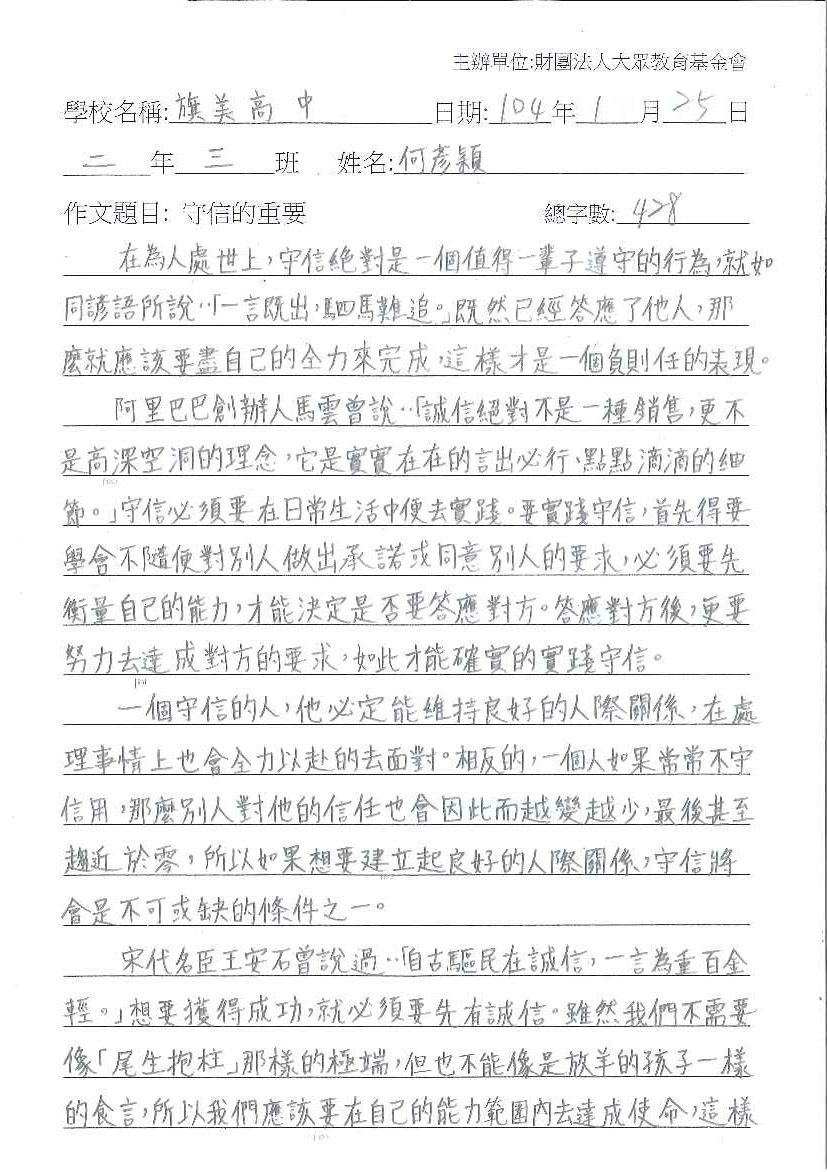 主辦單位:財團法人大眾教育基金會
學校名稱:旗美高中 日期:104年1月25日
二年三班 姓名:何彥穎
作文題目: 守信的重要 總字數:428
在為人處世上,守信絕對是一個值得一輩子遵守的行為,就如
同諺語所說:「一言既出,駟馬難追。」既然已經答應了他人,那
麼就應該要盡自己的全力來完成,這樣才是一個負則任的表現。
阿里巴巴創辦人馬雲曾說:「誠信絕對不是一種銷售,更不
是高深空洞的理念,它是實實在在的言出必行、點點滴滴的細
節。」守信必須要在日常生活中便去實踐。要實踐守信,首先得要
學會不隨便對別人做出承諾或同意別人的要求,必須要先
衡量自己的能力,才能決定是否要答應對方。答應對方後,更要
努力去達成對方的要求,如此才能確實的實踐守信。
一個守信的人,他必定能維持良好的人際關係,在處
理事情上也會全力以赴的去面對。相反的,一個人如果常常不守
信用,那麼別人對他的信任也會因此而越變越少,最後甚至
趨近於零,所以如果想要建立起良好的人際關係,守信將
會是不可或缺的條件之一。
宋代名臣王安石曾說過:「自古驅民在誠信,一言為重百金
輕。」想要獲得成功,就必須要先有誠信。雖然我們不需要
像「尾生抱柱」那樣的極端,但也不能像是放羊的孩子一樣
的食言,所以我們應該要在自己的能力範圍內去達成使命,這樣